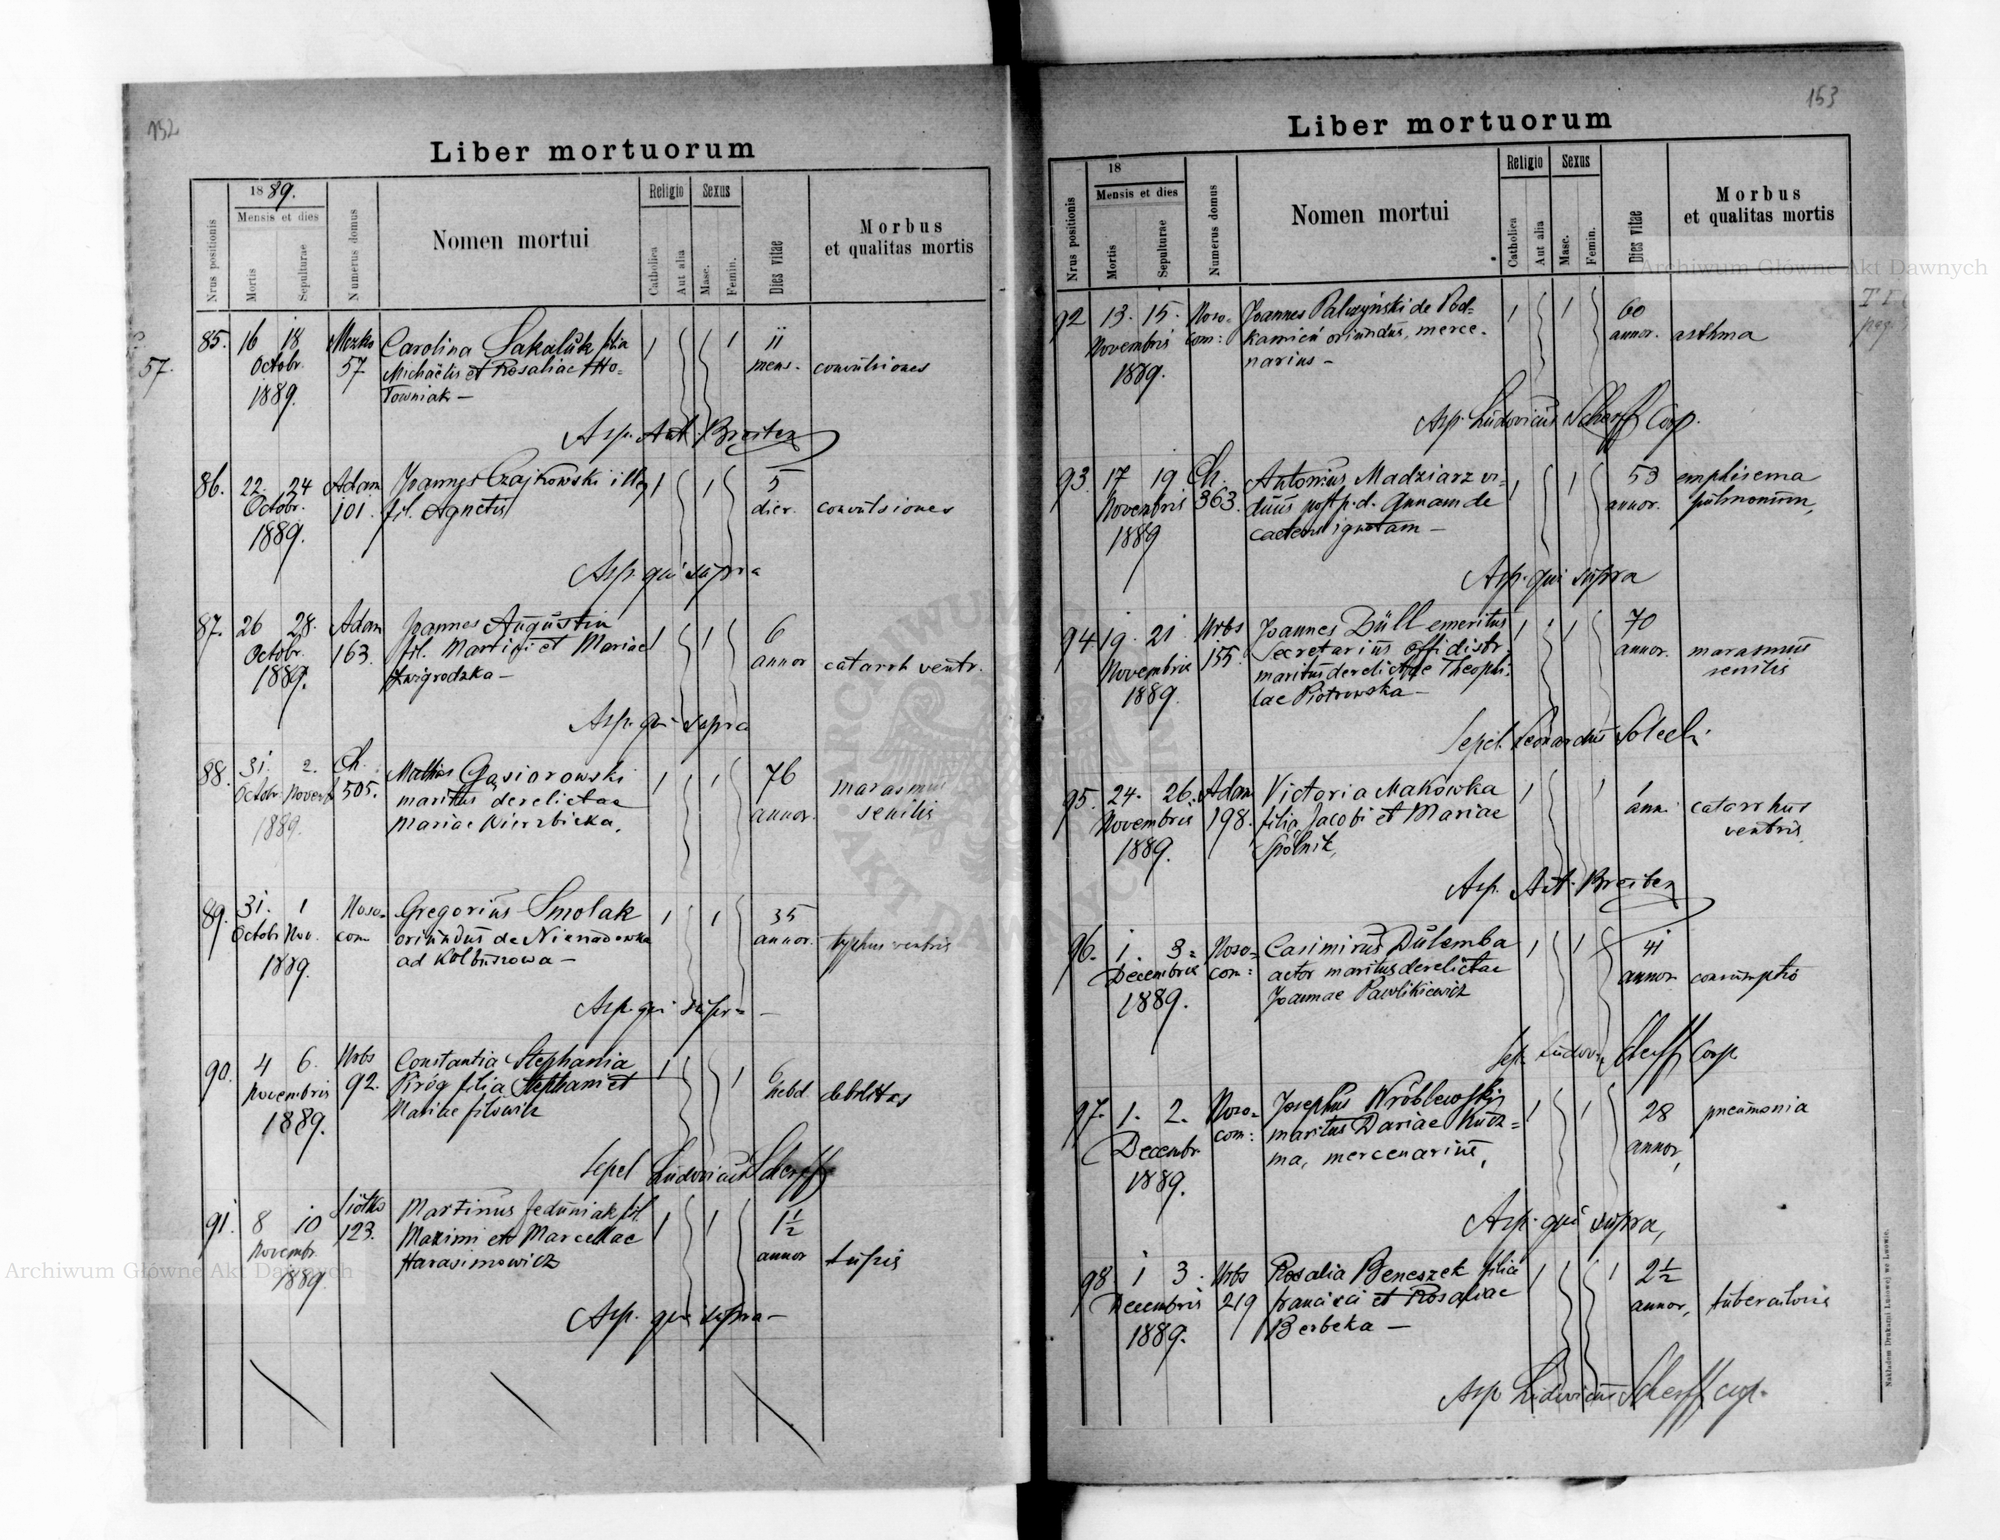 152
Liber mortuorum
Nrus positionis
1889.
Mensis et dies
Mortis
Sepulturae
Numerus domus
Nomen mortui
Religio
Catholica
Aut alia
Sexus
Masc.
Femin.
Dies vitae
Morbus
et qualitas mortis
57.
85. 16 18 Mozko Carolina Sakaluk filia 1 1 11
Octobr. 57 Michaëlis et Rosaliae Ho= mens. convulsiones
1889. łowniak —
Asp. Ant. Breiter
86. 22. 24 Adam Joannes Czajkowski illeg 1 1 5
Octobr. 101. fil. Agnetis dier. convulsiones
1889.
Asp. qui supra
87. 26 28. Adam Joannes Augustin 1 1 6
Octobr. 163. fil. Martini et Mariae annor catarrh ventr.
1889. Zwigrodzka —
Asp. qui supra
88. 31. 2. Ch. Mathias Gąsiorowski 1 1 76 marasmus
Octobr Novemb 505. maritus derelictae annor. senilis
1889. Mariae Wierzbicka.
89. 31. 1 Noso= Gregorius Smolak 1 1 35
Octobr Nov. com oriundus de Nienadowka annor. typhus ventris
1889. ad Kolbuszowa —
Asp. qui supra —
90. 4 6. Urbs Constantia Stephania 1 1 6
Novembris 92. Piróg filia Stephani et hebd. debilitas
1889. Mariae
Sepel Ludovicus Scherff
91. 8 10 Siółko Martinus Jeduniak fil. 1 1 1½
Novembr. 123. Maximi et Marcellae annor tussis
1889 Harasimowicz
Asp. qui supra —
153
Liber mortuorum
Nrus positionis
18
Mensis et dies
Mortis
Sepulturae
Numerus domus
Nomen mortui
Religio
Catholica
Aut alia
Sexus
Masc.
Femin.
Dies vitae
Morbus
et qualitas mortis
92 13. 15. Noso= Joannes Palczyński de Pod= 1 1 60
Novembris com: kamień oriundus, merce= annor. asthma
1889. narius —
Asp. Ludovicus Scherff Coop.
93. 17 19 Ch. Antonius Madziarz vi= 1 1 53 emphisema
Novembris 363. duus post p. d. Annam de annor. pulmonum,
1889 caetero ignotam —
Asp. qui supra
94 19. 21 Urbs Joannes Düll emeritus 1 1 70
Novembris 155. Secretarius offi distr. annor. marasmus
1889. maritus derelictae Theophi= senilis
lae Piotrowska —
Sepel. Leonardus Solecki
95. 24. 26. Adam Victoria Makowka 1 1 1
Novembris 198. filia Jacobi et Mariae ann. catarrhus
1889. Spólnik, ventris
Asp. Ant. Breiter
96. 1. 3= Noso= Casimirus Dulemba 1 1 41
Decembris com: actor maritus derelictae annor consumptio
1889. Joannae Pawlikiewicz
Sep. Ludov. Scherff Coop
97. 1. 2. Noso= Josephus Wróblewski 1 1 28 pneumonia
Decembr com: maritus Dariae Kuz= annor,
1889. ma, mercenarius,
Asp. qui supra,
98 1 3. Urbs Rosalia Beneszek filia 1 1 2½
Decembris 219 Francisci et Rosaliae annor, tuberculosis
1889. Berbeka —
Asp Ludovicus Scherff coop.
Nakładem Drukarni Ludowej we Lwowie.
Archiwum Główne Akt Dawnych
Archiwum Główne Akt Dawnych
ARCHIWUM GŁÓWNE AKT DAWNYCH